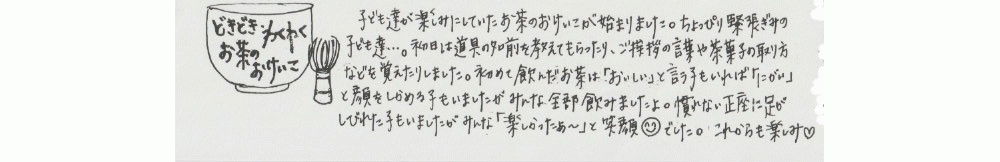 どきどきわくわく
お茶の
おけいこ
子ども達が楽しみにしていたお茶のおけいこが始まりました。ちょっぴり緊張ぎみの
子ども達…。初日は道具の名前を教えてもらったり、ご挨拶の言葉や茶菓子の取り方
などを覚えたりしました。初めて飲んだお茶は「おいしい」と言う子もいれば「にがい」
と顔をしかめる子もいましたがみんな全部飲みましたよ。慣れない正座に足が
しびれた子もいましたがみんな「楽しかったぁ〜」と笑顔でした。これからも楽しみ♡